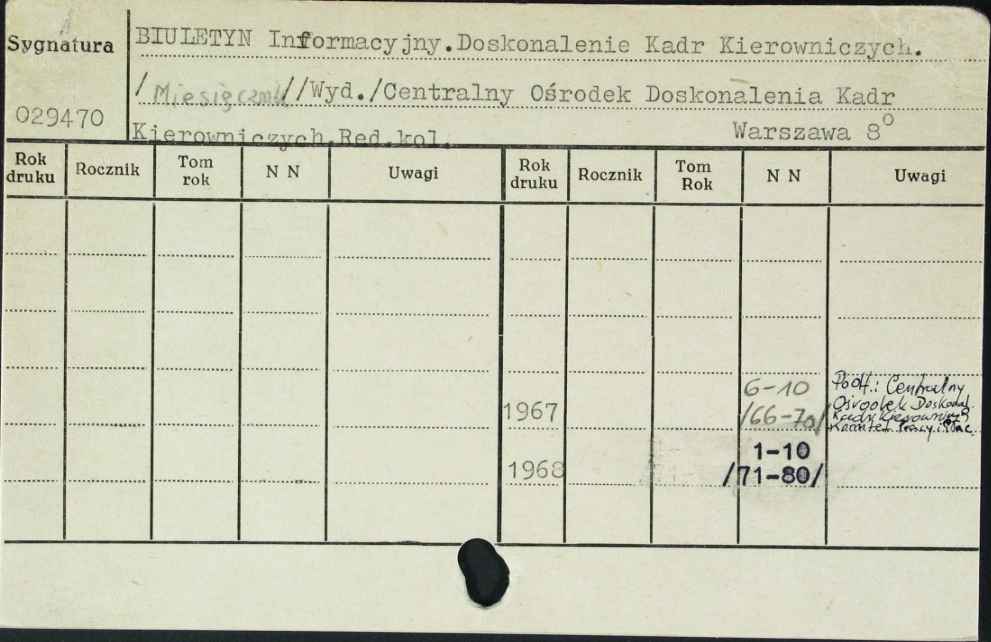 Sygnatura
BIULETYN Informacyjny.Doskonalenie Kadr Kierowniczych.
/Miesięcznik//Wyd./Centralny Ośrodek Doskonalenia Kadr
029470
Kierowniczych.Red.kol. Warszawa 8°
Rok druku Rocznik Tom rok N N Uwagi Rok druku Rocznik Tom Rok N N Uwagi
1967 6-10 /66-70/ Podt.: Centralny
Ośrodek Doskonal.
Kadry Kierowniczych
Komitet Pracy i Płac
1968 1-10 /71-80/